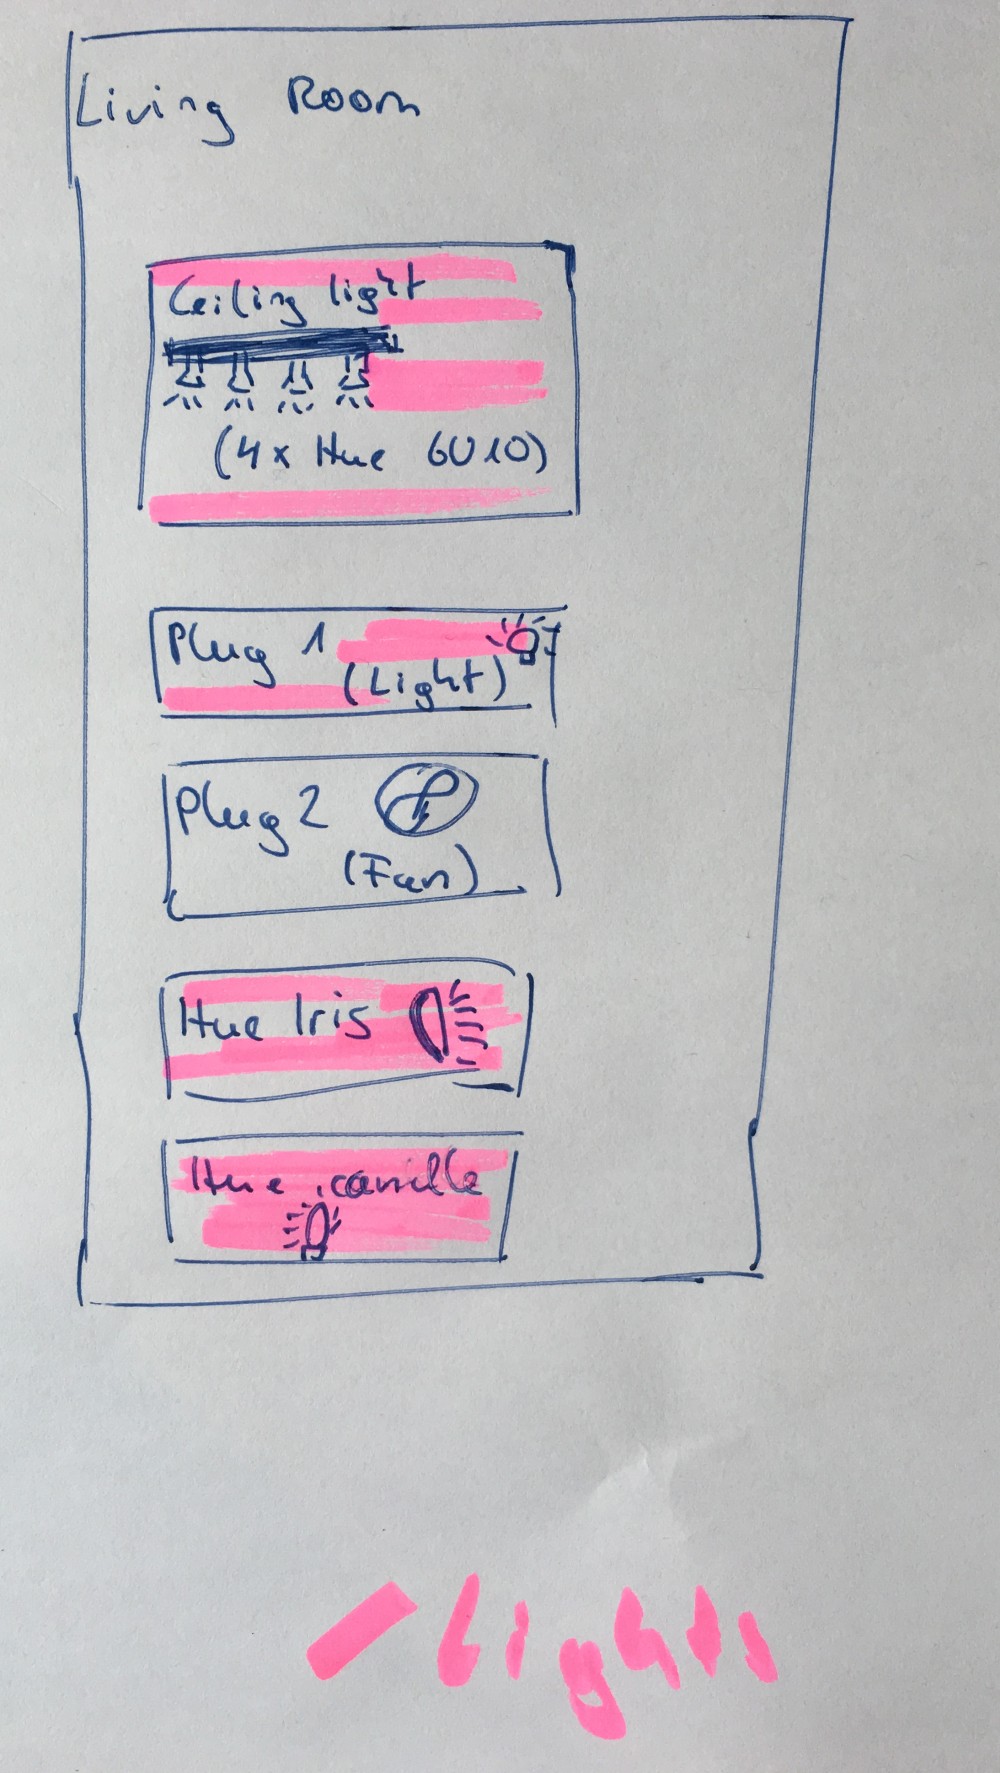 Living Room
Ceiling light
(4x Hue GU10)
Plug 1
(Light)
Plug 2
(Fan)
Hue Iris
Hue candle
Lights